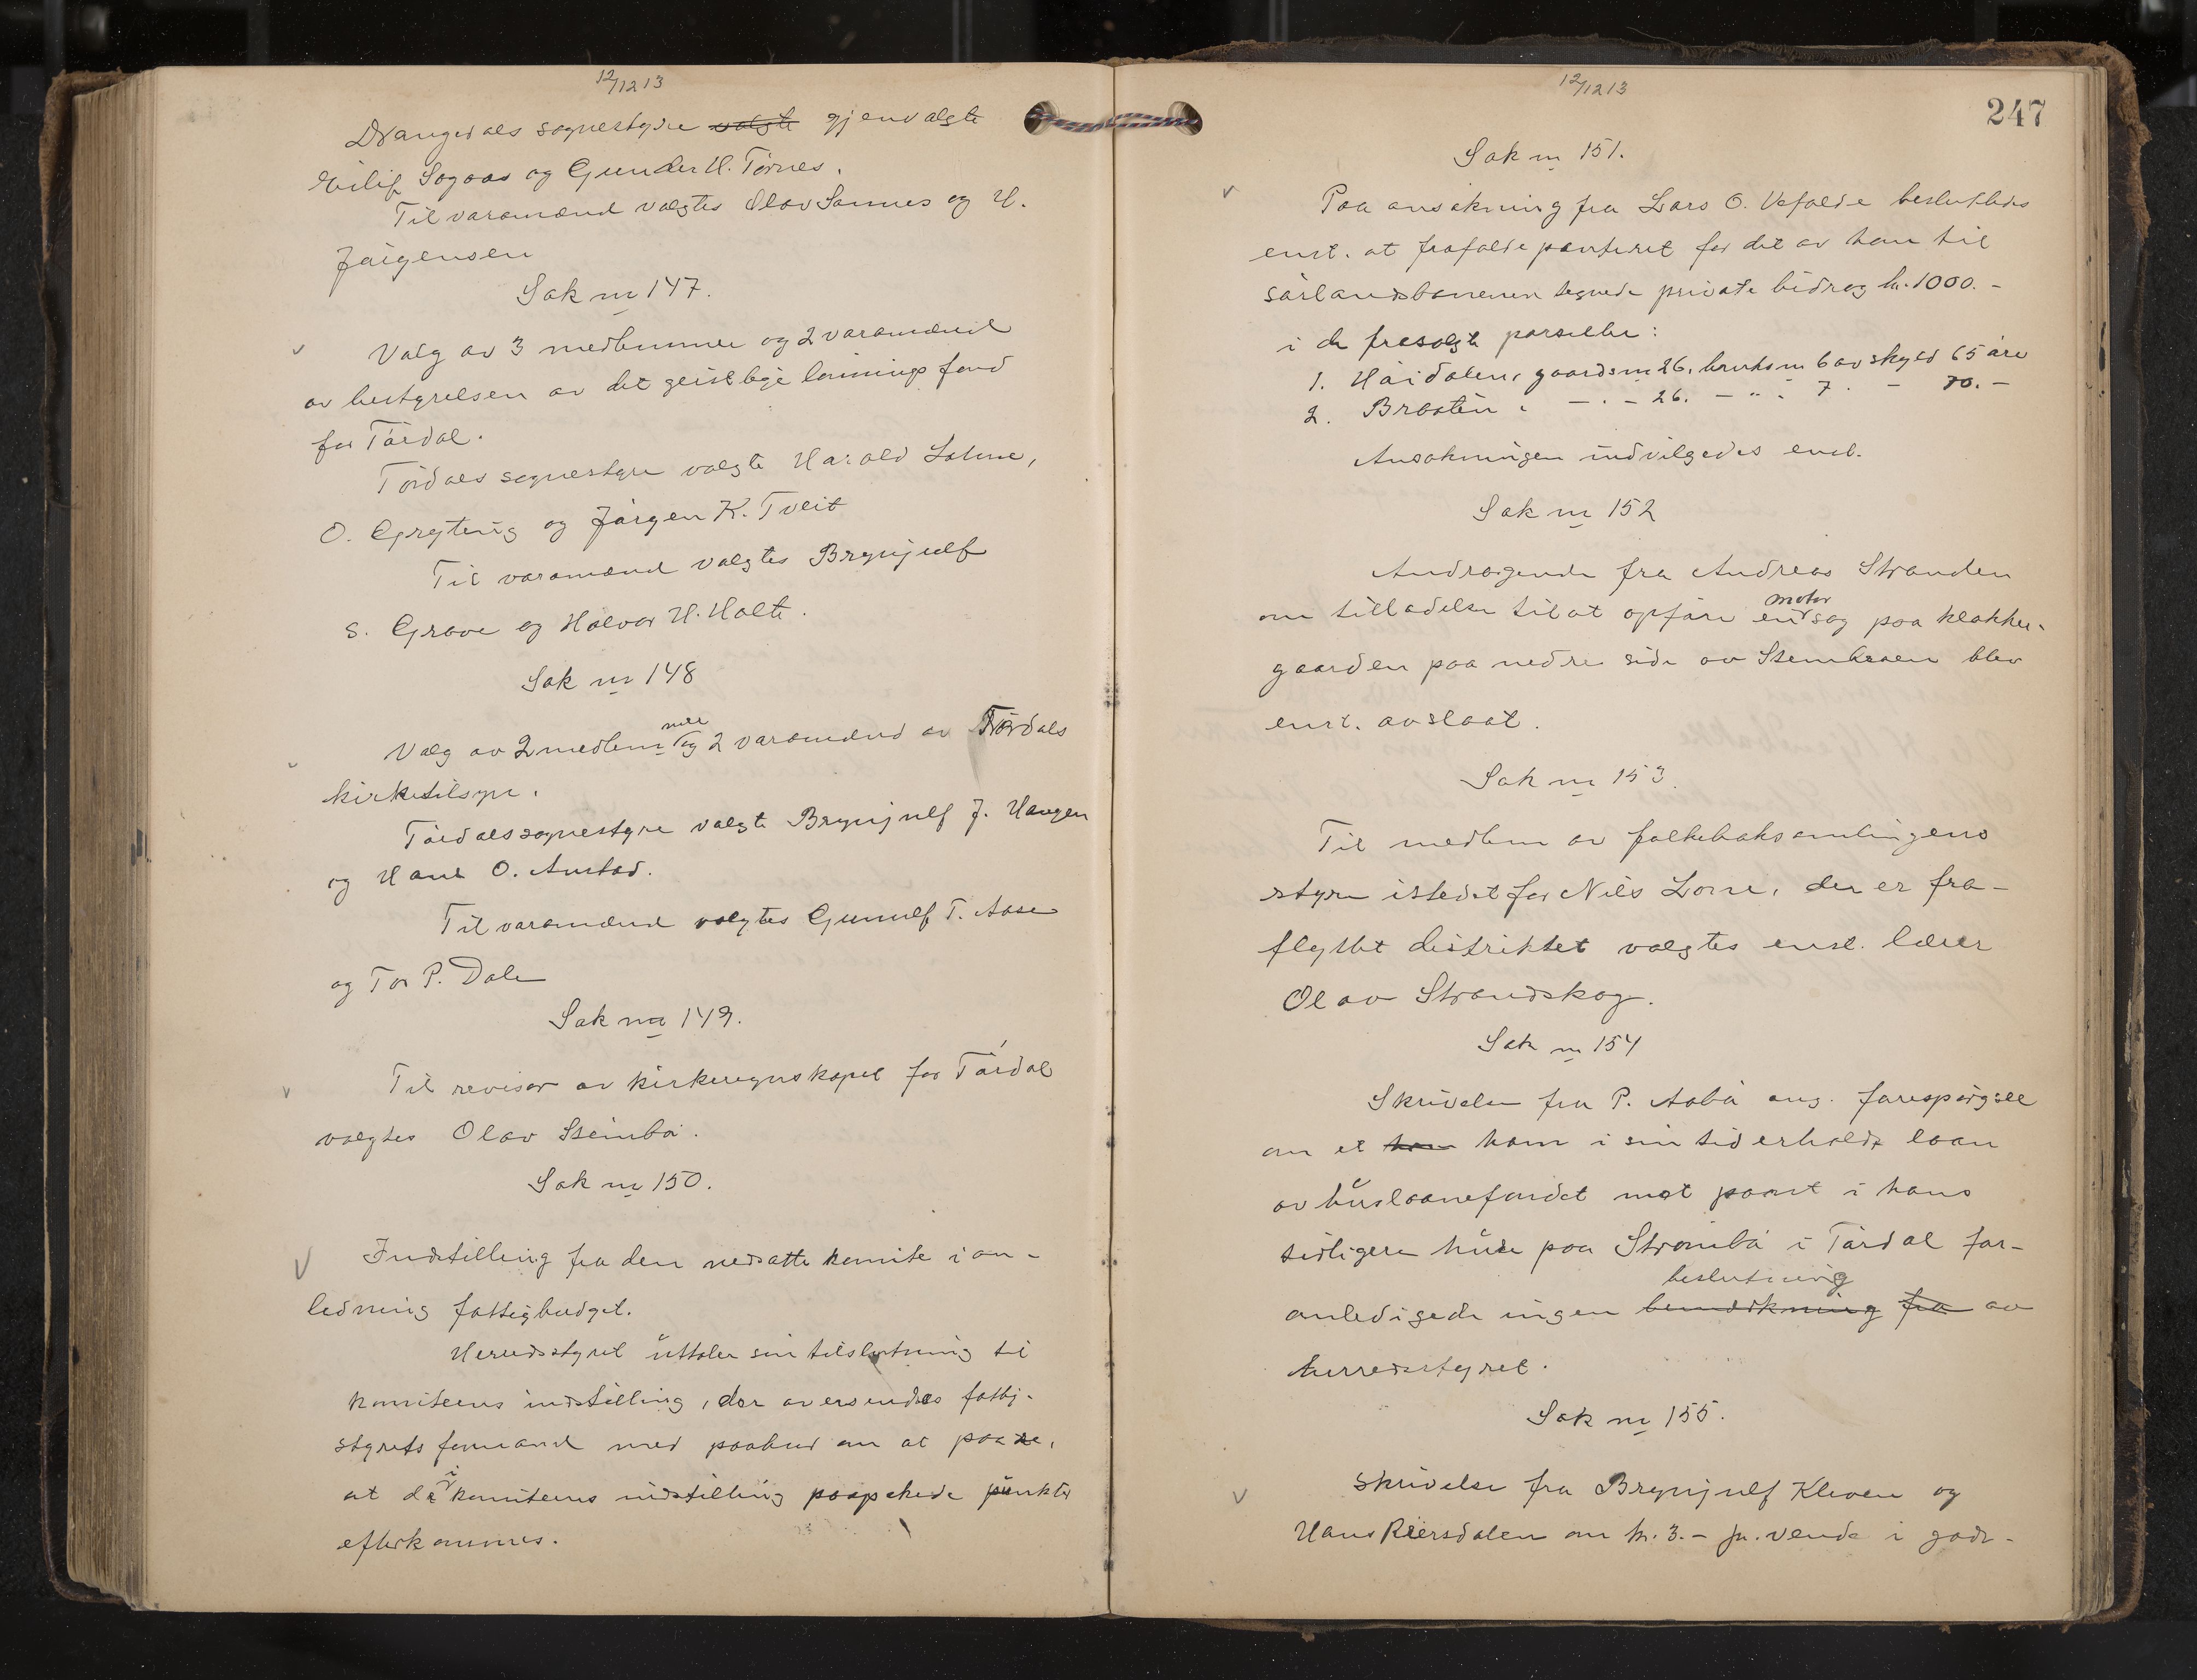 12/12 13
Drangedals sognestyre valgte gjenvalgte
Eilif Sogaas og Gunder H. Tørnes.
Til varamænd valgtes Olav Sannes og H.
Jørgensen
Sak nr 147.
Valg av 3 medlemmer og 2 varamænd
av bestyrelsen av det geistlige lønnings fond
for Tørdal.
Tørdals sognestyre valgte Harald
O. Grytting og Jørgen K. Tveit
Til varamænd valgtes Brynjulf
S. Grave og Halvor H. Holte.
Sak nr 148
mer
Valg av 2 medlem og 2 varamænd av Tørdals
kirketilsyn.
Tørdals sognestyre valgte Brynjulf J. Haugen
og Hans O. Austad.
Til varamænd valgtes Gunulf T. Aase
og Tor P. Dale
Sak nr 149.
Til revisor av kirkeregnskapet for Tørdal
valgtes Olav Steinbø.
Sak nr 150.
Indstilling fra den nedsatte komite i an-
ledning fattigbudget.
Herredsstyret uttaler sin tilslutning til
komiteens indstilling, der oversendes fattig-
styrets formand med paabud om at paase,
i
at de komiteens indstilling paapekede punkter
efterkommes.
12/12 13
247
Sak nr 151.
Paa ansøkning fra Lars O. Vefalde beslutledes
enst. at frafalde panteret for det av han til
sørlandsbanenen tegnede private bidrag kr. 1000.-
i de frasolgte parseller:
1. Høidalen, gaardsnr 26, bruksnr 6 av skyld 65 øre
2. Bråten, - . - 26. - " - 7. - 70.-
Ansøkningen indvilgedes enst.
Sak nr 152
Andragende fra Andreas Stranden
motor
om tilladelse til at opføre en sag paa klokker-
gaarden paa nedre side av Stembraaen blev
enst. avslaat.
Sak nr 153.
Til medlem av folkeboksamlingens
styre istedet for Nils Lone, der er fra-
flyttet distriktet valgtes enst. lærer
Olav Strandskog.
Sak nr 154
Skrivelse fra P. Aabø ang. forespørgsel
om et ham ham i sin tid erholdt laan
av huslaanefondet mot pant i hans
tidligere huse paa Strømbø i Tørdal for-
beslutning
anledigede ingen bemærkning fra av
herredsstyret.
Sak nr 155.
Skrivelse fra Brynjulf Kleven og
Hans Reiersdalen om kr. 3.- pr. vende i godt-